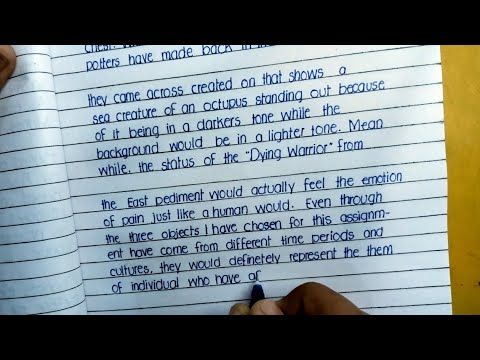 potters have made back in
they came across created on that shows a
sea creature of an octupus standing out because
of it being in a darkers tone while the
background would be in a lighter tone. Mean
while, the status of the "Dying Warrior" from
the East pediment would actually feel the emotion
of pain just like a human would. Even through
the three objects I have chosen for this assignm-
ent have come from different time periods and
cultures, they would definetely represent the them
of individual who have af